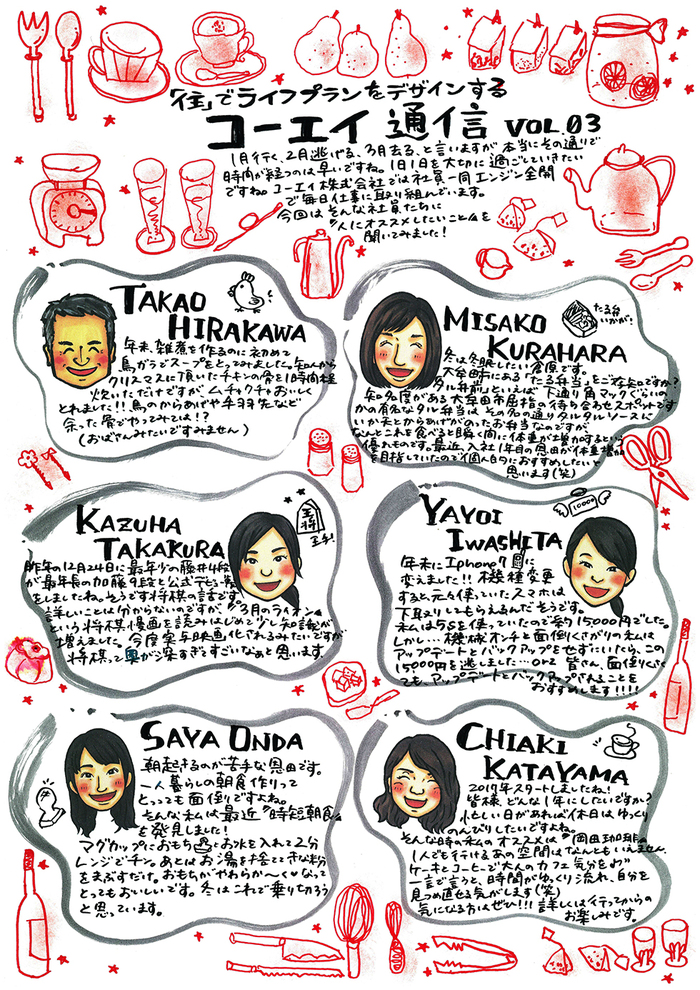 「住」でライフプランをデザインする
コーエイ 通信 VOL.03
1月行く、2月逃げる、3月去る、と言いますが本当にその通りで
時間が経つのは早いですね。1日1日を大切に過ごしていきたい
ですね。コーエイ株式会社では社員一同エンジン全開
で毎日仕事に取り組んでいます。
今回はそんな社員たちに
"人にオススメしたいこと"を
聞いてみました!
TAKAO
HIRAKAWA
年末、雑煮を作るのに初めて
鳥ガラでスープをとってみました。知人から
クリスマスに頂いたチキンの骨を1時間程
炊いただけですがムチャクチャおいしく
とれました!!鳥のからあげや手羽先など
余った骨でやってみては!?
(おばさんみたいですみません)
MISAKO
KURAHARA
たる弁
いかが!
冬は冬眠したい倉原です。
大牟田市にある「たる弁当」をご存知ですか?
タル弁前といえば、下通り角マックぐらいの
知名度がある大牟田市屈指の待ち合わせスポットです
かの有名なタル弁当はその名の通りタルタルソースに
いか天とからあげがのったお弁当なのですが、
なんとこれを食べると瞬く間に体重が増加するという
優れものです。最近、入社1年目の恩田が体重増加
を目指していたので個人的におすすめしたいと
思います(笑)
KAZUHA
TAKAKURA
王将
王手!
昨年の12月24日に最年少の藤井4段
が最年長の加藤9段と公式デビュー戦
をしましたね。そうです将棋の話です。
詳しいことは分からないのですが、"3月のライオン"
という将棋漫画を読みはじめて少し知識が
増えました。今度実写映画化されるみたいですが
将棋って奥が深すぎてすごいなぁと思います。
YAYOI
IWASHITA
10000
年末にIphone7に
変えました!! 機種変更
すると、元々使っていたスマホは
下取りしてもらえるんだそうです。
私は5Sを使っていたので約15000円でした。
しかし…機械オンチと面倒くさがりの私は
アップデートとバックアップをせずにいたら、この
15000円を逃しました…orz 皆さん、面倒くさく
ても、アップデートとバックアップされることを
おすすめします!!!!
SAYA ONDA
朝起きるのが苦手な恩田です。
一人暮らしの朝食作りって
とっっても面倒ですよね。
そんな私は最近"時短朝食"
を発見しました!
マグカップにおもちとお水を入れて2分
レンジでチン。あとはお湯を捨ててきな粉
をまぶすだけ。おもちがやわらか〜くなって
とってもおいしいです。冬はこれで乗りきろう
と思っています。
CHIAKI
KATAYAMA
2017年スタートしましたね!
皆様、どんな1年にしたいですか?
忙しい日があれば休日はゆっくり
のんびりしたいですよね。
そんな時の私のオススメは"岡田珈琲"
1人でも行けるあの空間はなんともいえません。
ケーキとコーヒーで大人のカフェ気分をあじわ
一言で言うと、時間がゆっくり流れ、自分を
見つめ直せる気がします(笑)
気になる方はぜひ!!! 詳しくは行ってからの
お楽しみです。